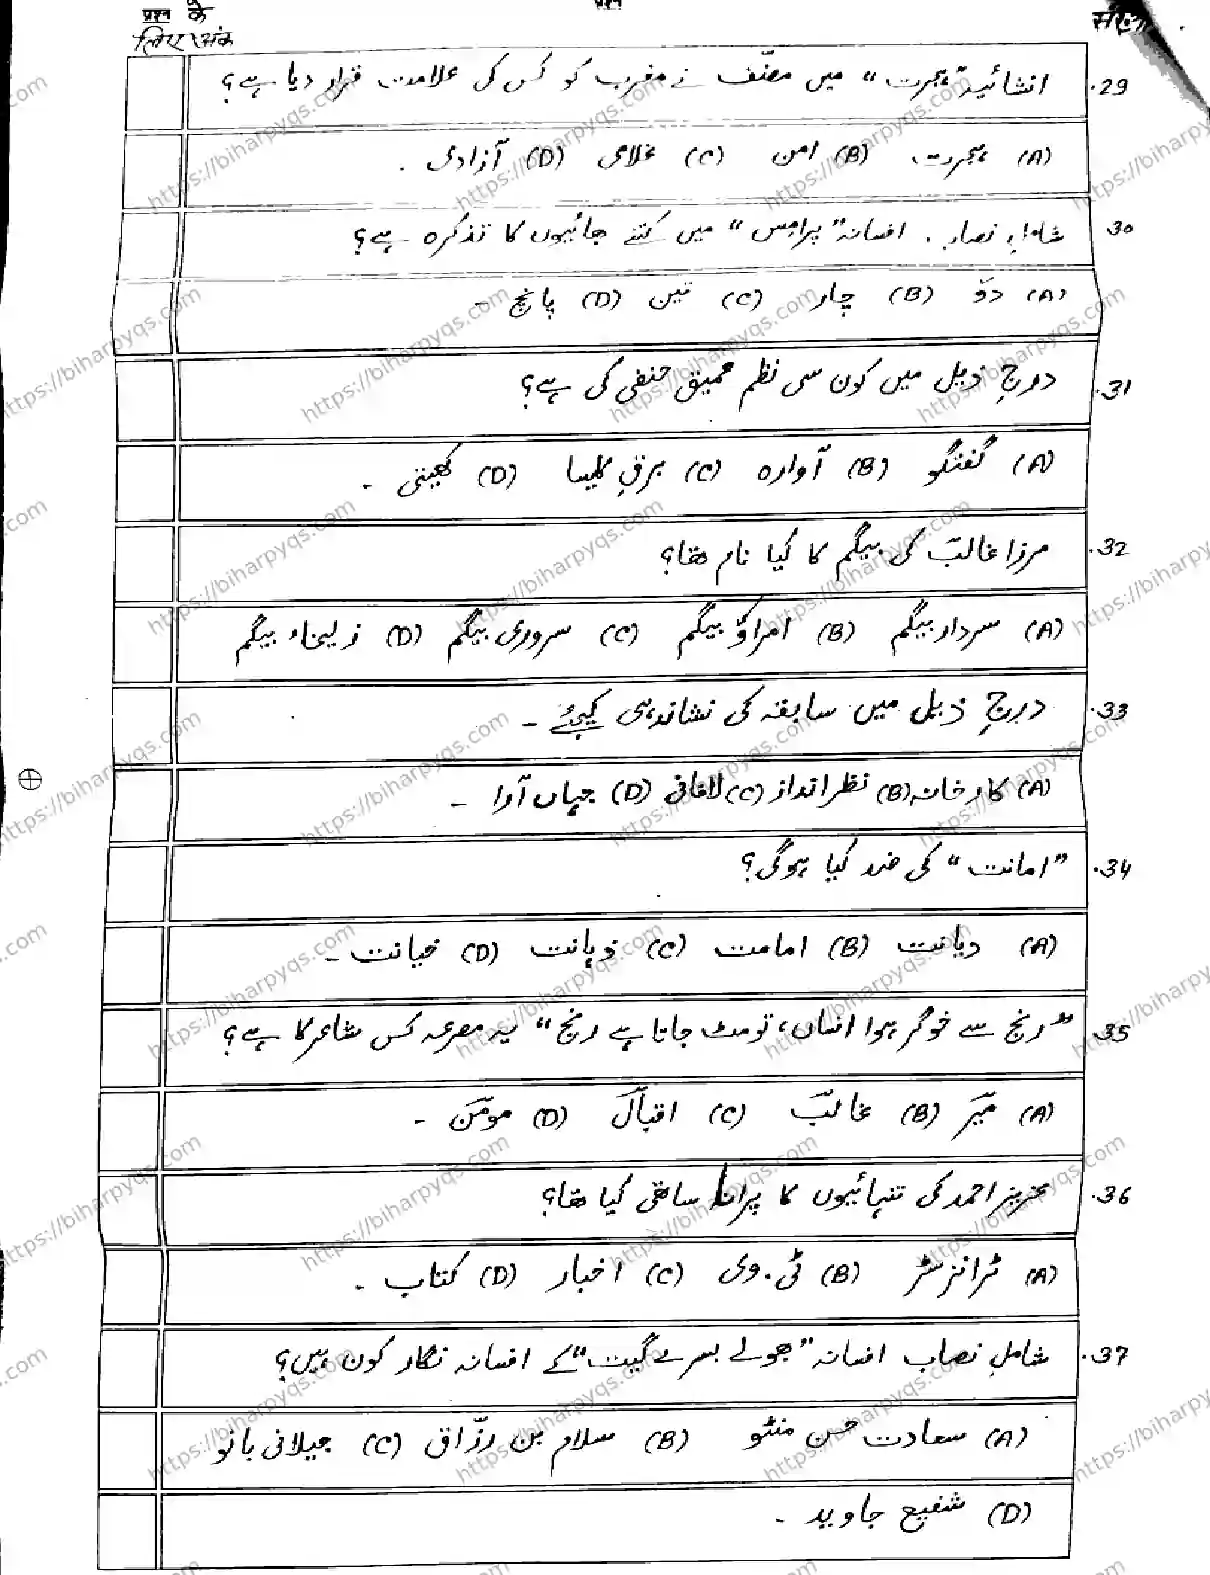 प्रश्न के
लिए अंक
प्रश्न
29. انشائیہ "ہجرت" میں مصنّف نے مغرب کو کس کی علامت قرار دیا ہے؟
(A) ہجرت (B) امن (C) غلامی (D) آزادی ۔
30 شامل نصاب۔ افسانہ "پرامِس" میں کتنے بھائیوں کا تذکرہ ہے؟
(A) دو (B) چار (C) تین (D) پانچ ۔
31. درجِ ذیل میں کون سی نظم عمیق حنفی کی ہے؟
(A) گفتگو (B) آوارہ (C) برقِ کلیسا (D) کھیتی ۔
32. مرزا غالبؔ کی بیگم کا کیا نام تھا؟
(A) سردار بیگم (B) امراؤ بیگم (C) سروری بیگم (D) زلیخاء بیگم
33. درجِ ذیل میں سابقہ کی نشاندہی کیجئے ۔
(A) کارخانہ (B) نظرانداز (C) لافانی (D) جہاں آرا ۔
34. "امانت" کی ضد کیا ہوگی؟
(A) دیانت (B) امامت (C) ذہانت (D) خیانت ۔
35. "رنج سے خوگر ہوا انساں، تو مٹ جاتا ہے رنج" یہ مصرعہ کس شاعر کا ہے؟
(A) میرؔ (B) غالبؔ (C) اقبالؔ (D) مومنؔ ۔
36. عزیز احمد کی تنہائیوں کا پرانا ساتھی کیا تھا؟
(A) ٹرانزسٹر (B) ٹی.وی (C) اخبار (D) کتاب ۔
37. شاملِ نصاب افسانہ "بھولے بسرے گیت" کے افسانہ نگار کون ہیں؟
(A) سعادت حسن منٹو (B) سلام بن رزّاق (C) جیلانی بانو
(D) شفیع جاوید ۔
https://biharpyqs.com